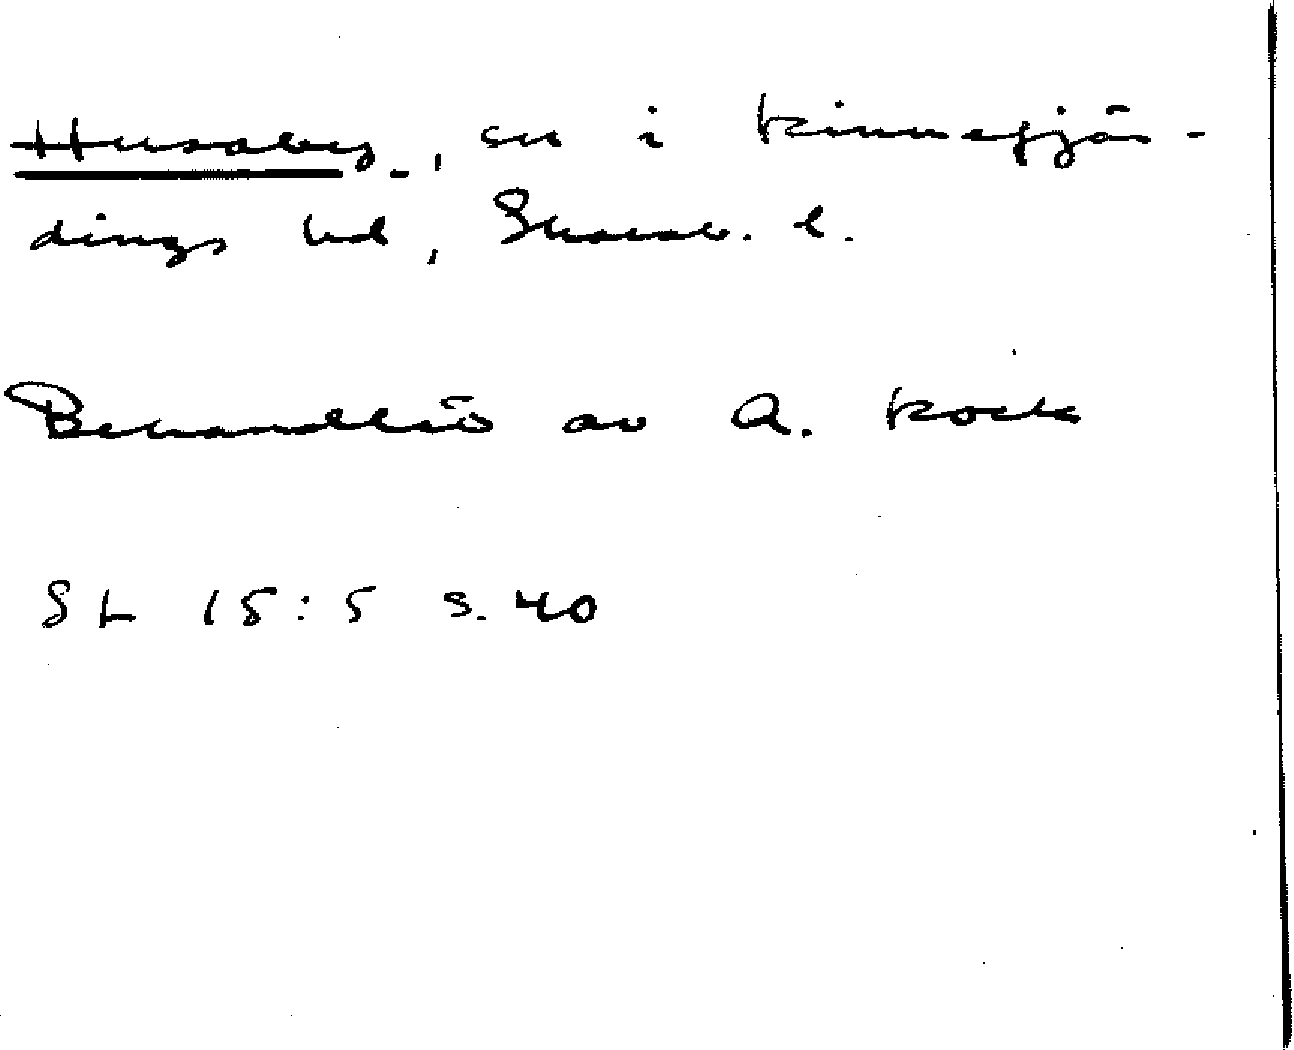 Husaby, sn i Kinnefjär-
dings hd, Skarab. l.
Behandlas av A. Kock
SL 15:5 s. 40